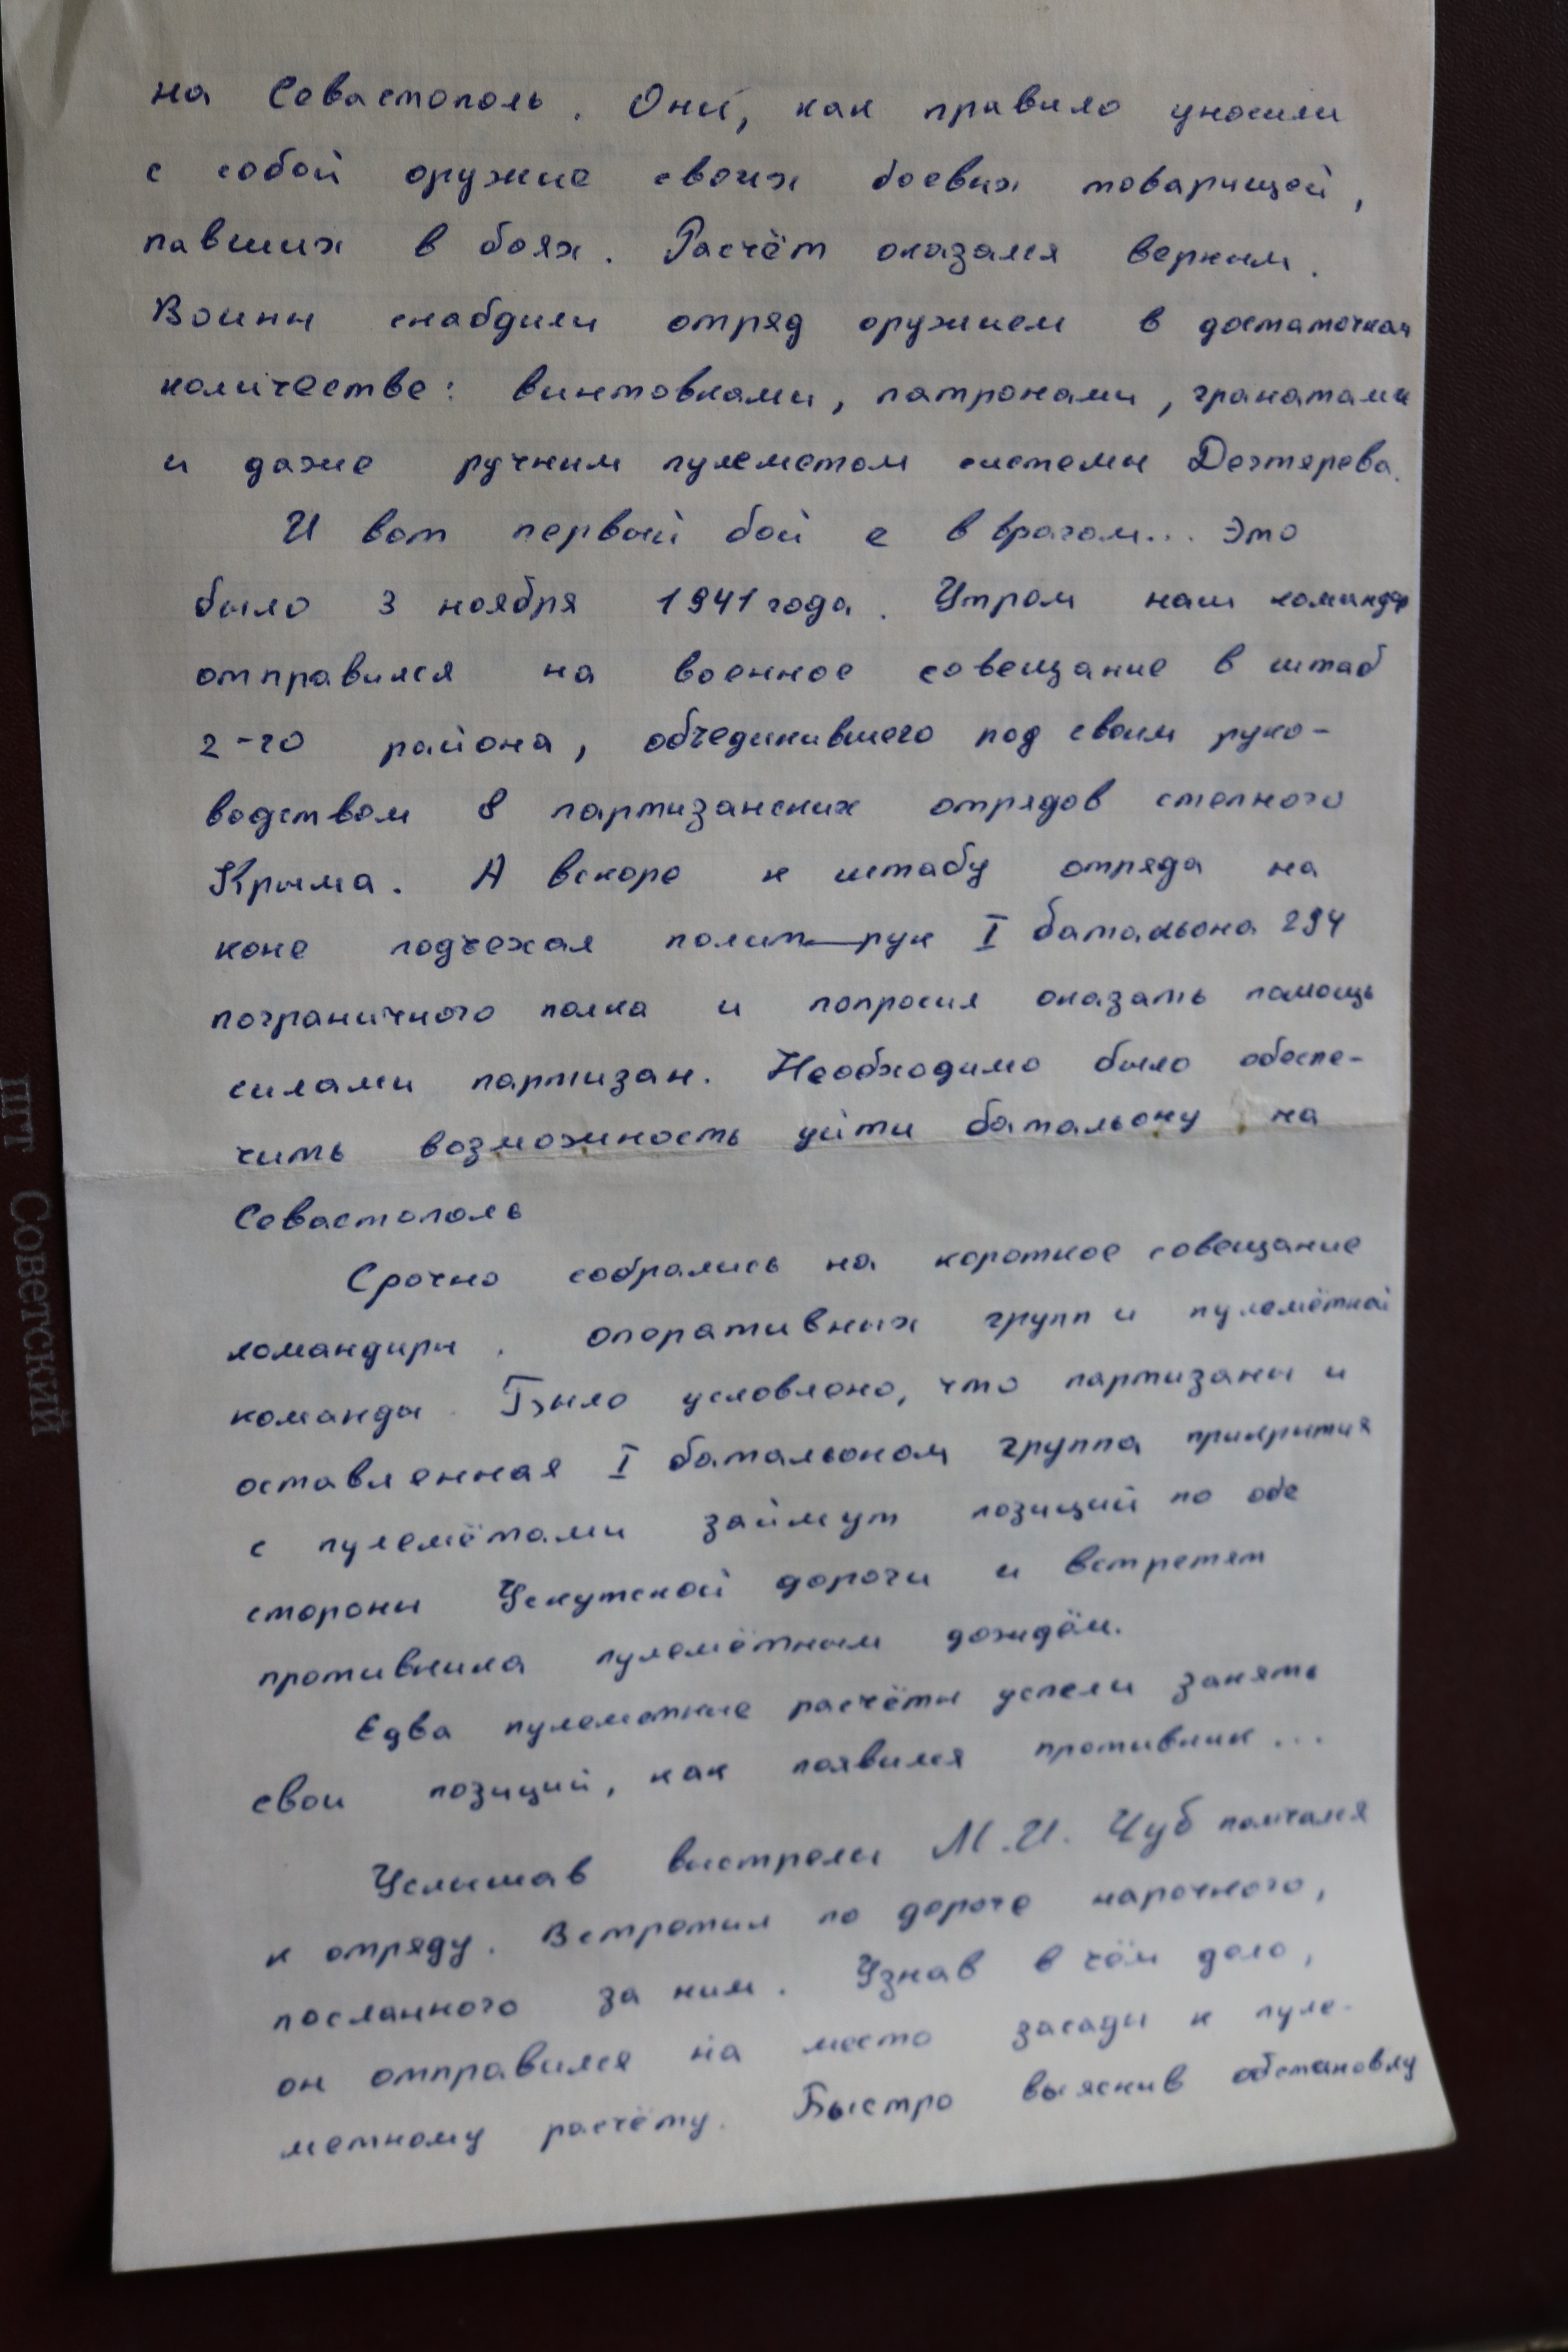 на Севастополь. Они, как правило уносили
с собой оружие своих боевых товарищей,
павших в боях. Расчёт оказался верным.
Воины снабдили отряд оружием в достаточном
количестве: винтовками, патронами, гранатами
и даже ручным пулеметом системы Дегтярева.
И вот первый бой с в врагом... Это
было 3 ноября 1941 года. Утром наш командир
отправился на военное совещание в штаб
2-го района, объединившего под своим руко-
водством 8 партизанских отрядов степного
Крыма. А вскоре к штабу отряда на
коне подъехал полит—рук I батальона 294
пограничного полка и попросил оказать помощь
силами партизан. Необходимо было обеспе-
чить возможность уйти батальону на
Севастополь
Срочно собрались на короткое совещание
командиры. оперативных групп и пулемётной
команды. Было условлено, что партизаны и
оставленная I батальоном группа прикрытия
с пулемётами займут позиций по обе
стороны Ускутской дороги и встретят
противника пулемётным дождём.
Едва пулеметные расчёты успели занять
свои позиций, как появился противник...
Услышав выстрелы М.И. Чуб помчался
к отряду. Встретил по дороге нарочного,
посланного за ним. Узнав в чём дело,
он отправился на место засады к пуле-
метному расчёту. Быстро выяснив обстановку
шт Советский